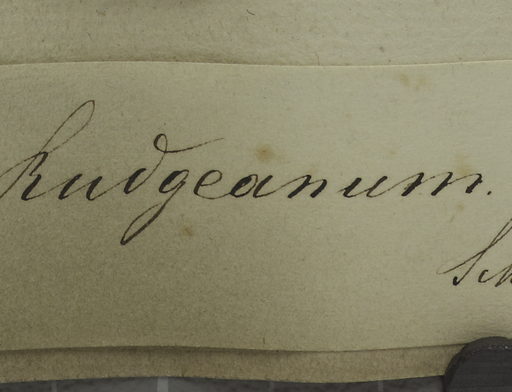 Rudgeanum.
Sch